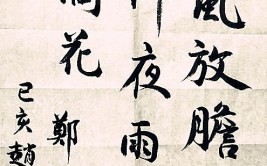 風放膽
夜雨
花 鄭
己亥趙